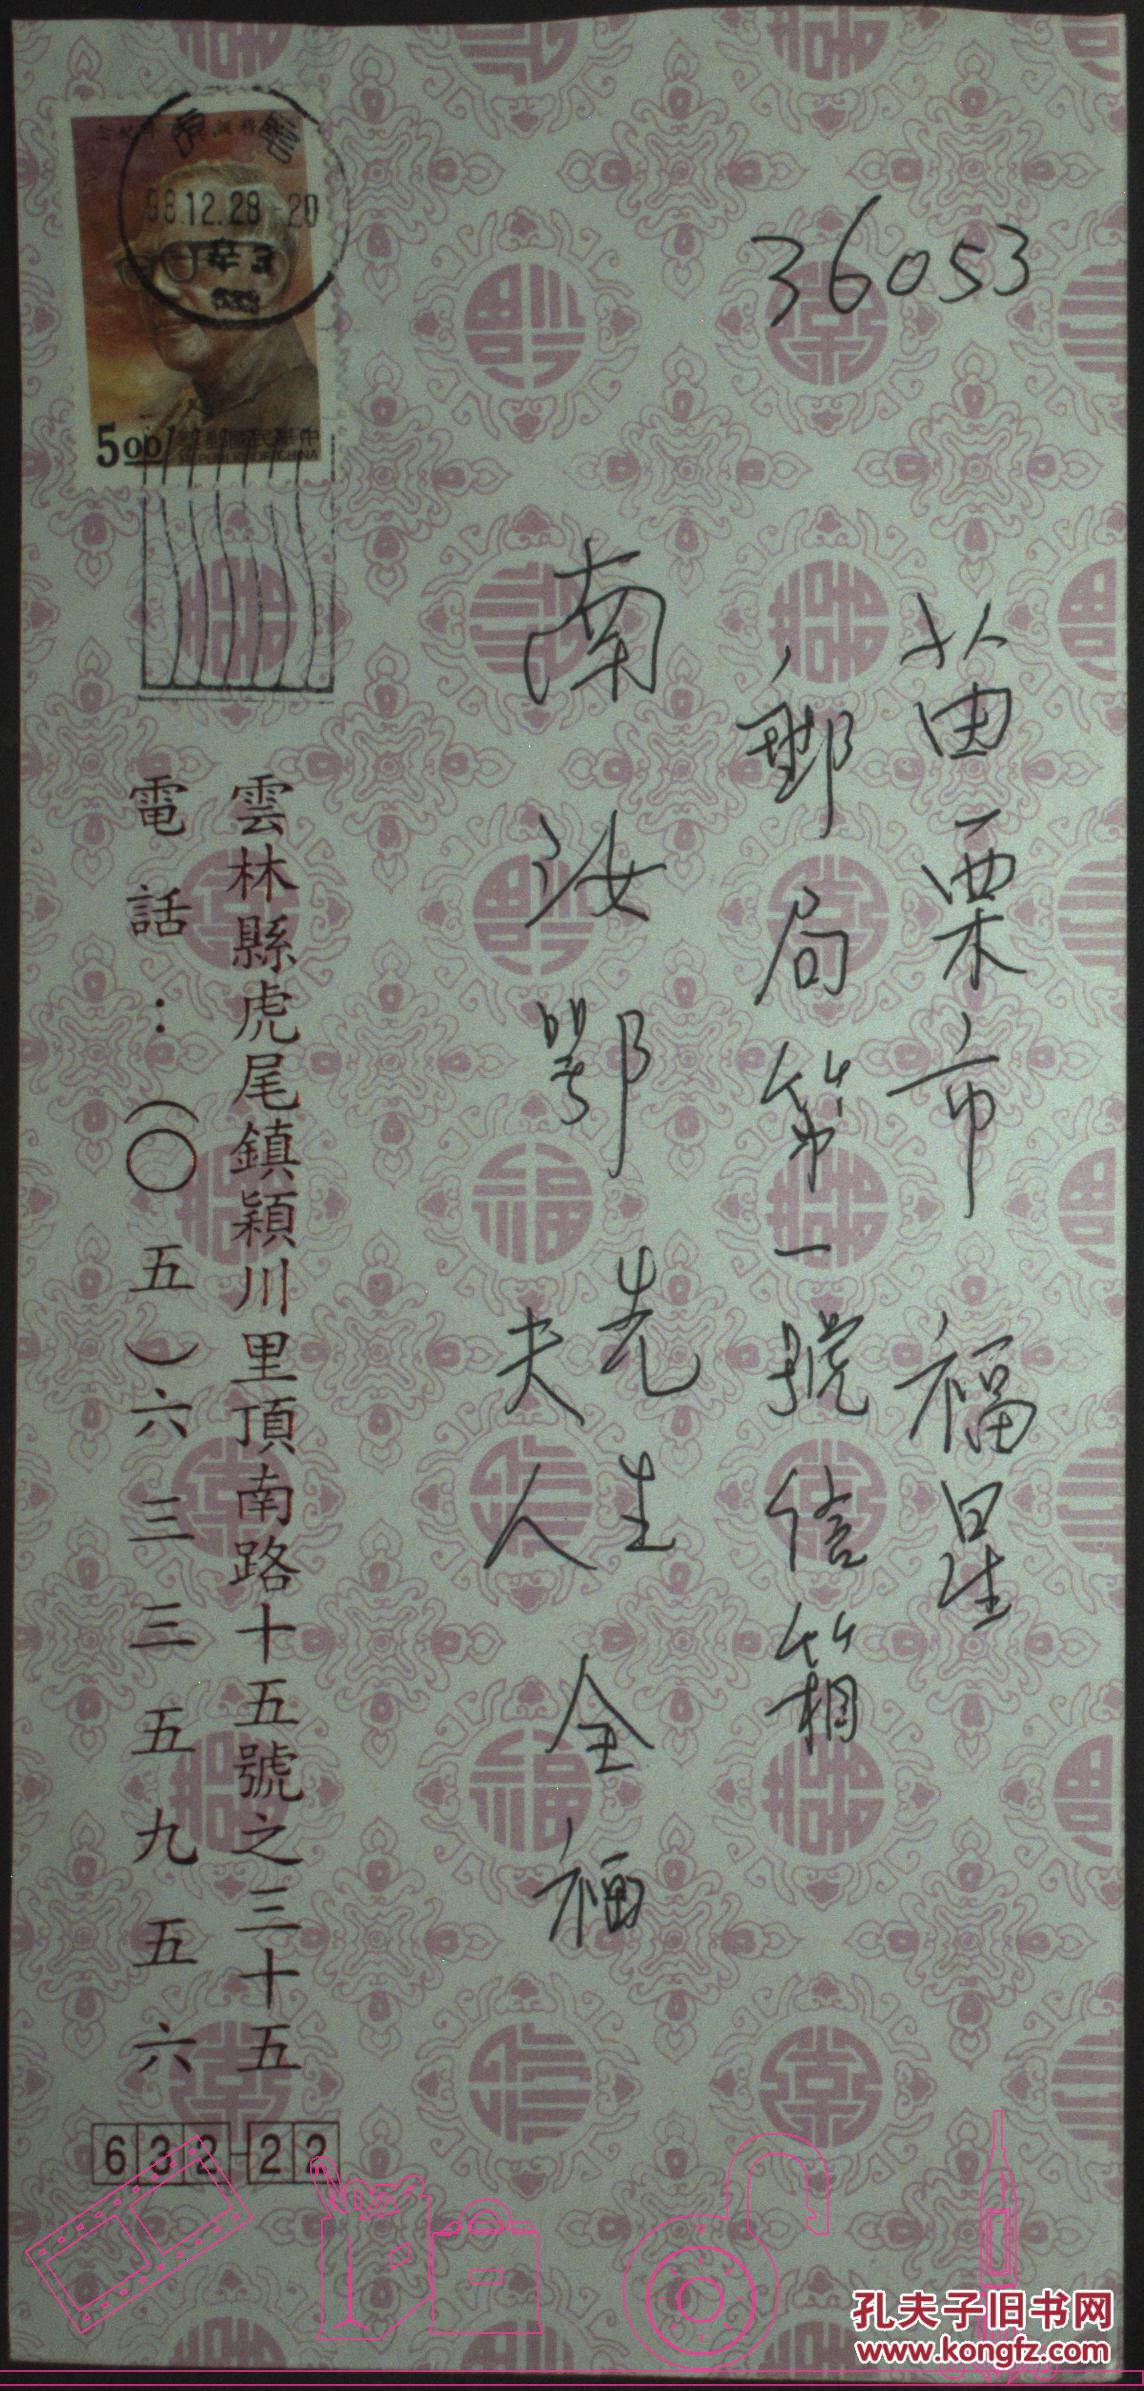 36053
苗栗市 福星
郵局第一號信箱
南汝鄂 先生
夫人
全福
雲林縣虎尾鎮穎川里頂南路十五號之三十五
電話：（〇五）六三三五九五六
632-22
98.12.28-20
500
中華民國郵票
REPUBLIC OF CHINA
孔夫子旧书网
www.kongfz.com